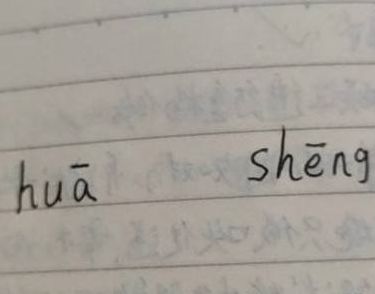 huā shēng